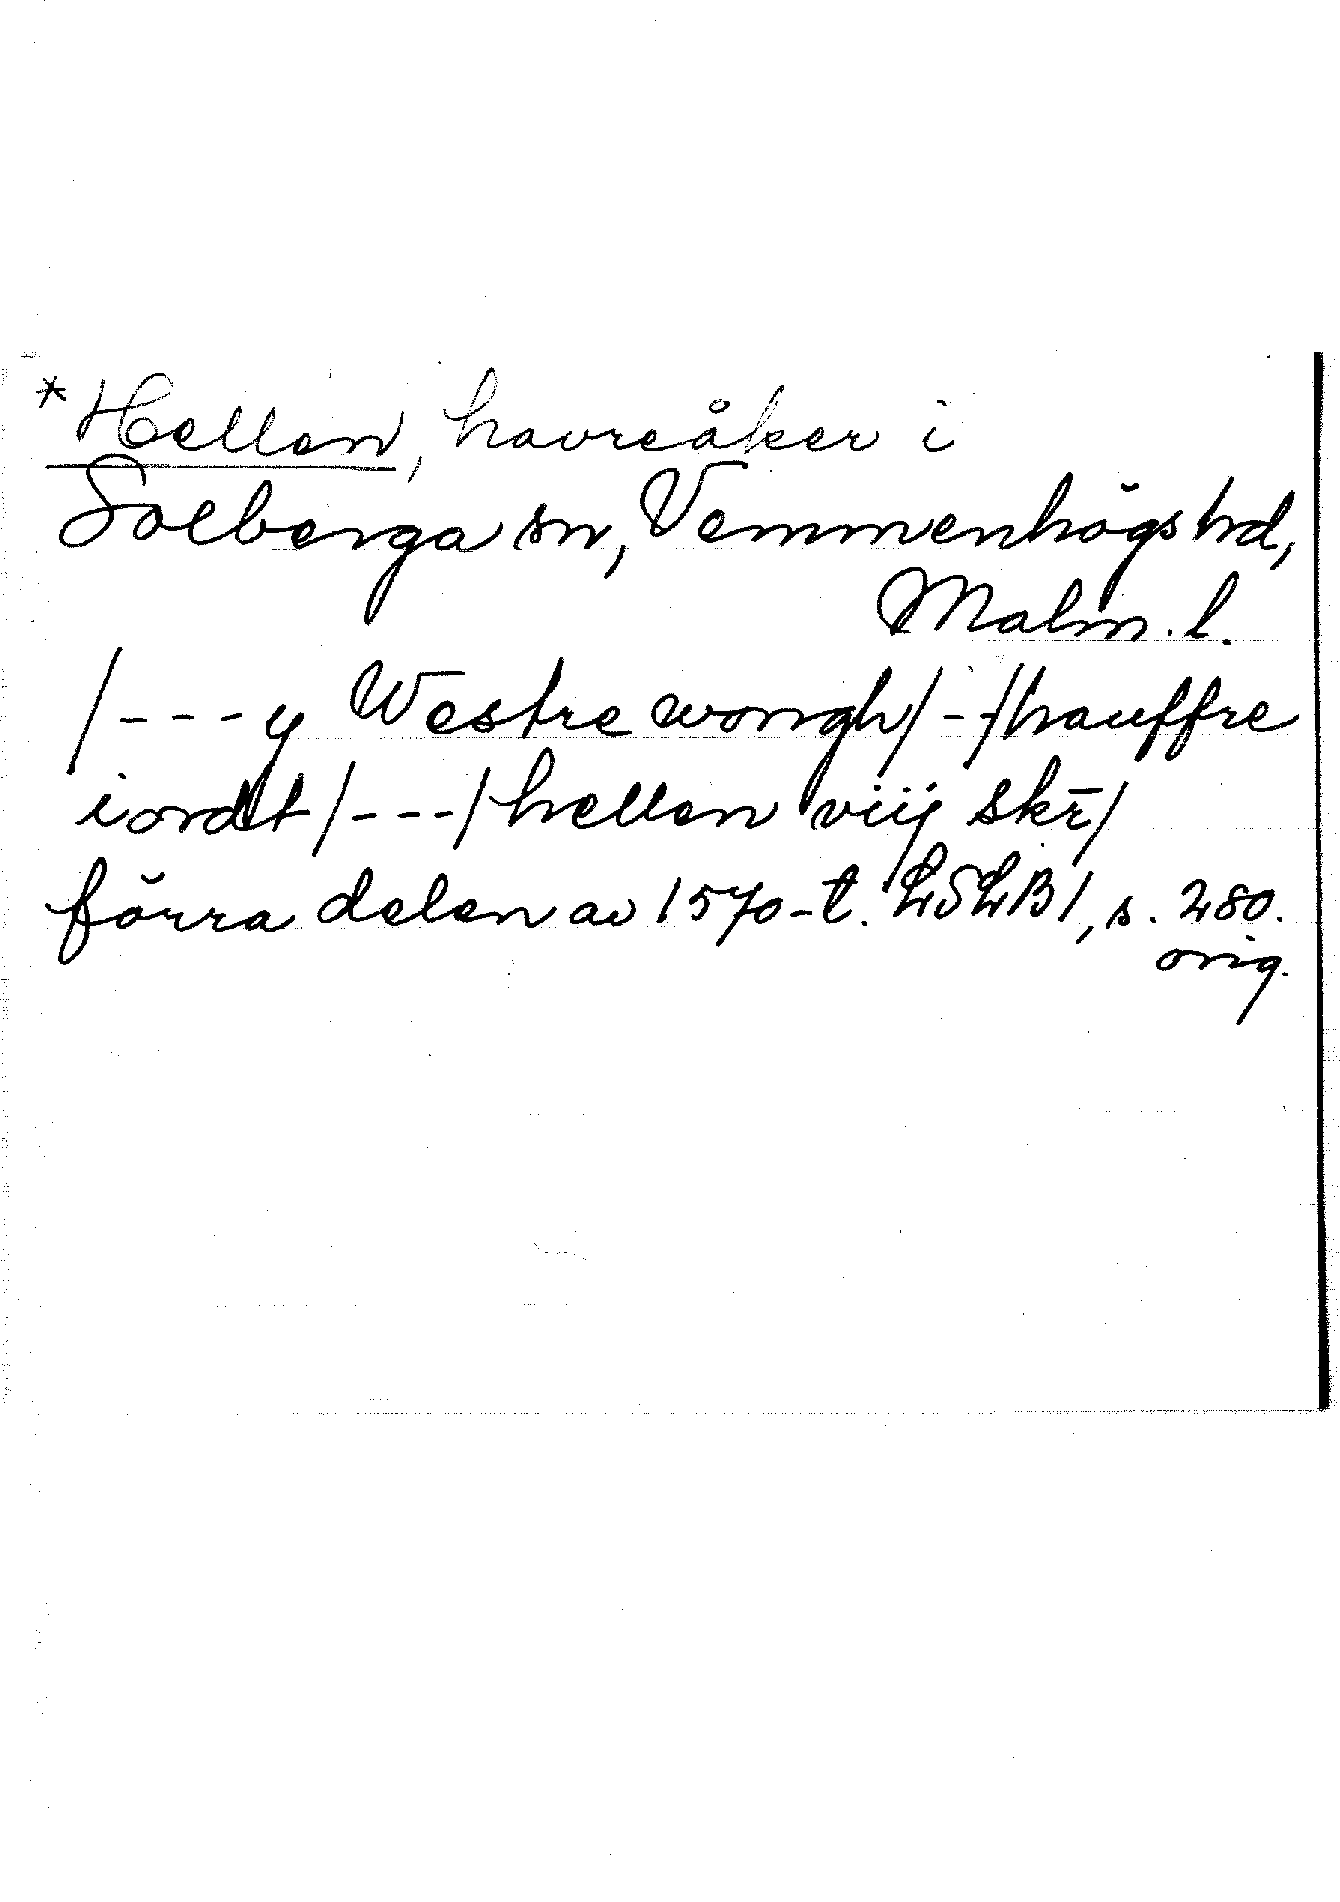 *Hellen, havreåker i
Solberga sn, Vemmenhögs hd,
Malm. l.
/---y Westre wongh/--/hauffre
iordt/---/hellen viij skr̄/
förra delen av 1570-t. LSLB 1, s. 280.
orig.